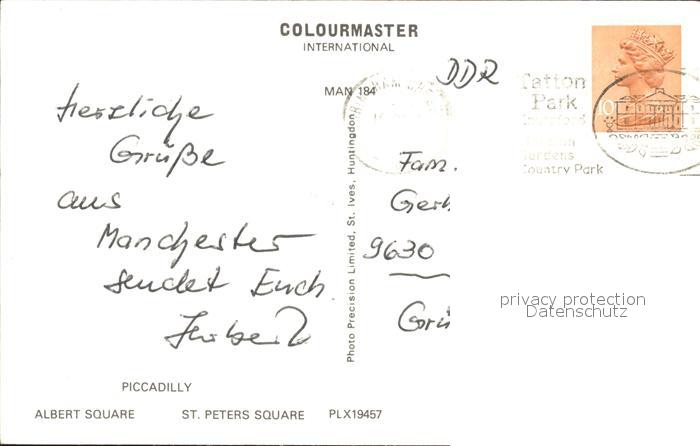 COLOURMASTER
INTERNATIONAL
MAN 184
DDR
Tatton
Park
Gardens
Country Park
10
Herzliche
Grüße
aus
Manchester
sendet Euch
Photo Precision Limited, St. Ives, Huntingdon
Fam.
Gerh
9630
privacy protection
Datenschutz
PICCADILLY
ALBERT SQUARE ST. PETERS SQUARE PLX19457